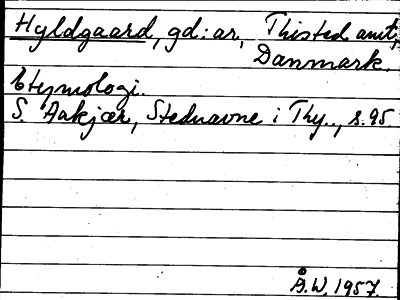 Hyldgaard, gd:ar, Thisted amt,
Danmark.
Etymologi.
S. Aakjær, Stednavne i Thy.., s.95
Å.W. 1957.